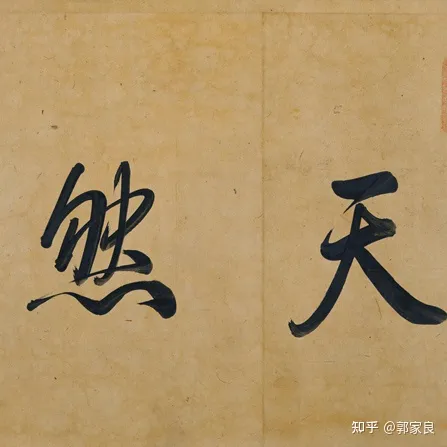 天然
知乎 @郭家良